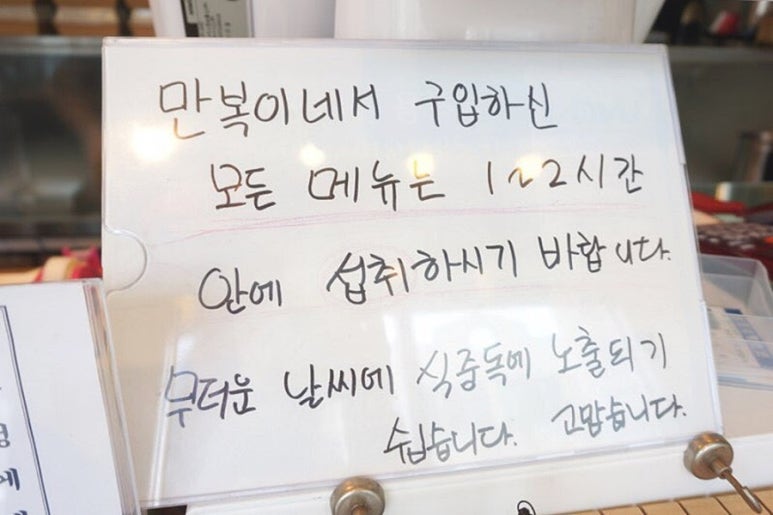 만복이네서 구입하신
모든 메뉴는 1~2시간
안에 섭취하시기 바랍니다.
무더운 날씨에 식중독에 노출되기
쉽습니다. 고맙습니다.
에